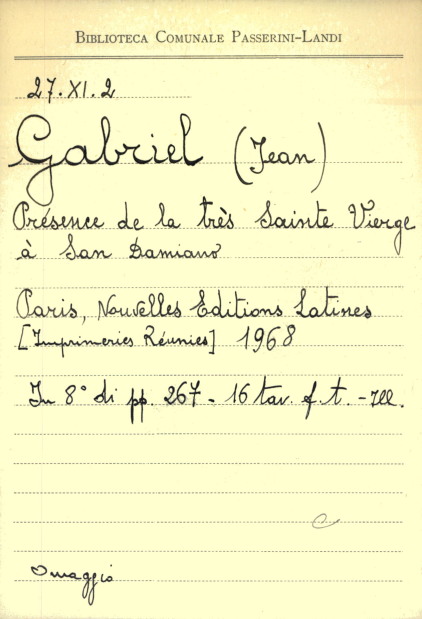 BIBLIOTECA COMUNALE PASSERINI-LANDI
27.XI.2
Gabriel (Jean)
Présence de la très Sainte Vierge
à San Damiano
Paris, Nouvelles Editions Latines
[Imprimeries Réunies] 1968
In 8° di pp. 267 - 16 tav. f.t. - Ill.
C
Omaggio